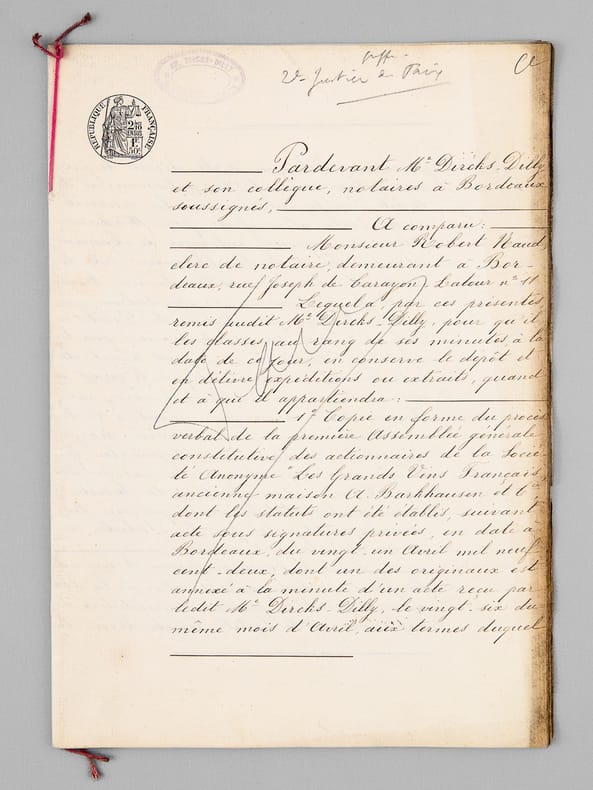 greffe
2e Justice de Paix
RÉPUBLIQUE FRANÇAISE
2/10 EN SUS
1F 50C
DIRCKS-DILLY
Pardevant Me Dircks-Dilly
et son collègue, notaires à Bordeaux
soussignés,
A comparu:
Monsieur Robert
clerc de notaire, demeurant à Bor-
deaux, rue (Joseph de Carayon) Latour no 11
Lequel a, par ces présentes,
remis audit Me Dircks-Dilly, pour qu'il
les classe au rang de ses minutes, à la
date de ce jour, en conserve le dépôt et
en délivre expéditions ou extraits, quand
et à qui il appartiendra:
1o Copie en forme du procès
verbal de la première Assemblée générale
constitutive des actionnaires de la Socié-
té Anonyme "Les Grands Vins Français,
ancienne maison A. Barkhausen et Ce",
dont les statuts ont été établis, suivant
acte sous signatures privées, en date à
Bordeaux, du vingt-un Avril mil neuf
cent-deux, dont un des originaux est
annexé à la minute d'un acte reçu par
ledit Me Dircks-Dilly, le vingt-six du
même mois d'Avril, aux termes duquel